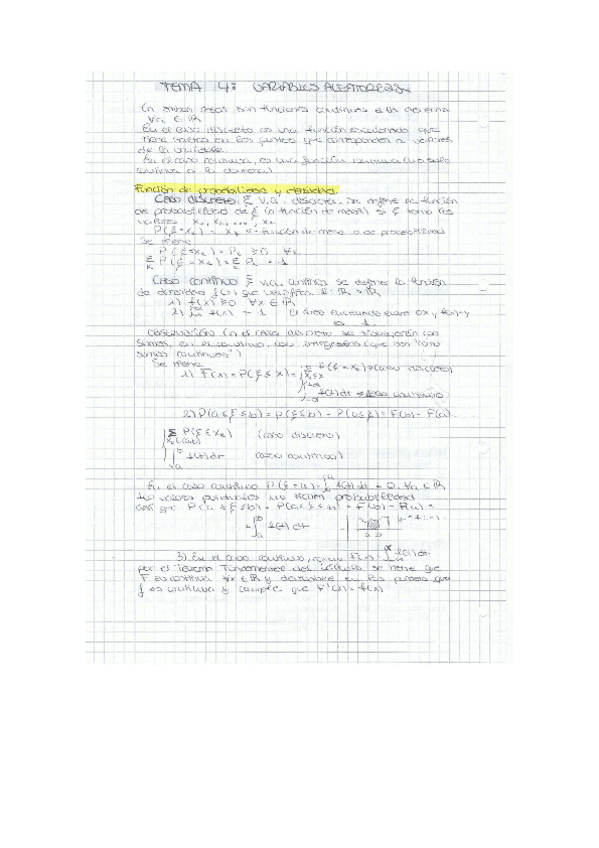 TEMA 4: VARIABLES ALEATORIAS
En ambos casos son funciones continuas a la derecha
∀x ∈ ℝ
En el caso discreto es una función escalonada que
tiene saltos en los puntos que corresponden a valores
de la variable.
En el caso continuo, es una función continua
continua a la derecha)
Función de probabilidad y densidad.
Caso discreto: ξ v.a. discreta. Se define la función
de probabilidad de ξ (o función de masa) si ξ toma los
valores x₁, x₂, ..., xₖ
P(ξ=xₖ) = Pₖ función de masa o de probabilidad
Se tiene
P(ξ=xₖ) = Pₖ ≥ 0 ∀k
Σ P(ξ=xₖ) = Σ Pₖ = 1
Caso continuo ξ v.a. continua se define la función
de densidad f(x) que verifica f: ℝ → ℝ
1) f(x) ≥ 0 ∀x ∈ ℝ
2) ∫ f(x) = 1 El área encerrada entre OX y f(x)=y
es 1.
Observación: (En el caso discreto se trabaja con
sumas, en el continuo, con integrales (que son "como
sumas continuas")
Se tiene
1) F(x) = P(ξ ≤ x) = Σ P(ξ = xₖ) (caso discreto)
∫ f(t) dt (caso continuo)
2) P(a ≤ ξ ≤ b) = P(ξ ≤ b) - P(ξ ≤ a) = F(b) - F(a).
Σ P(ξ = xₖ) (caso discreto)
∫ f(t) dt (caso continuo)
En el caso continuo P(ξ = a) = ∫ f(t) dt = 0, ∀a ∈ ℝ
los valores puntuales no tienen probabilidad
así que P(a ≤ ξ ≤ b) = P(a < ξ < b) = F(b) - F(a) =
= ∫ f(t) dt
3) En el caso continuo, como F(x) = ∫ f(t) dt
por el Teorema Fundamental del Cálculo se tiene que
F es continua ∀x ∈ ℝ y derivable en los puntos que
f es continua y cumple que F'(x) = f(x)